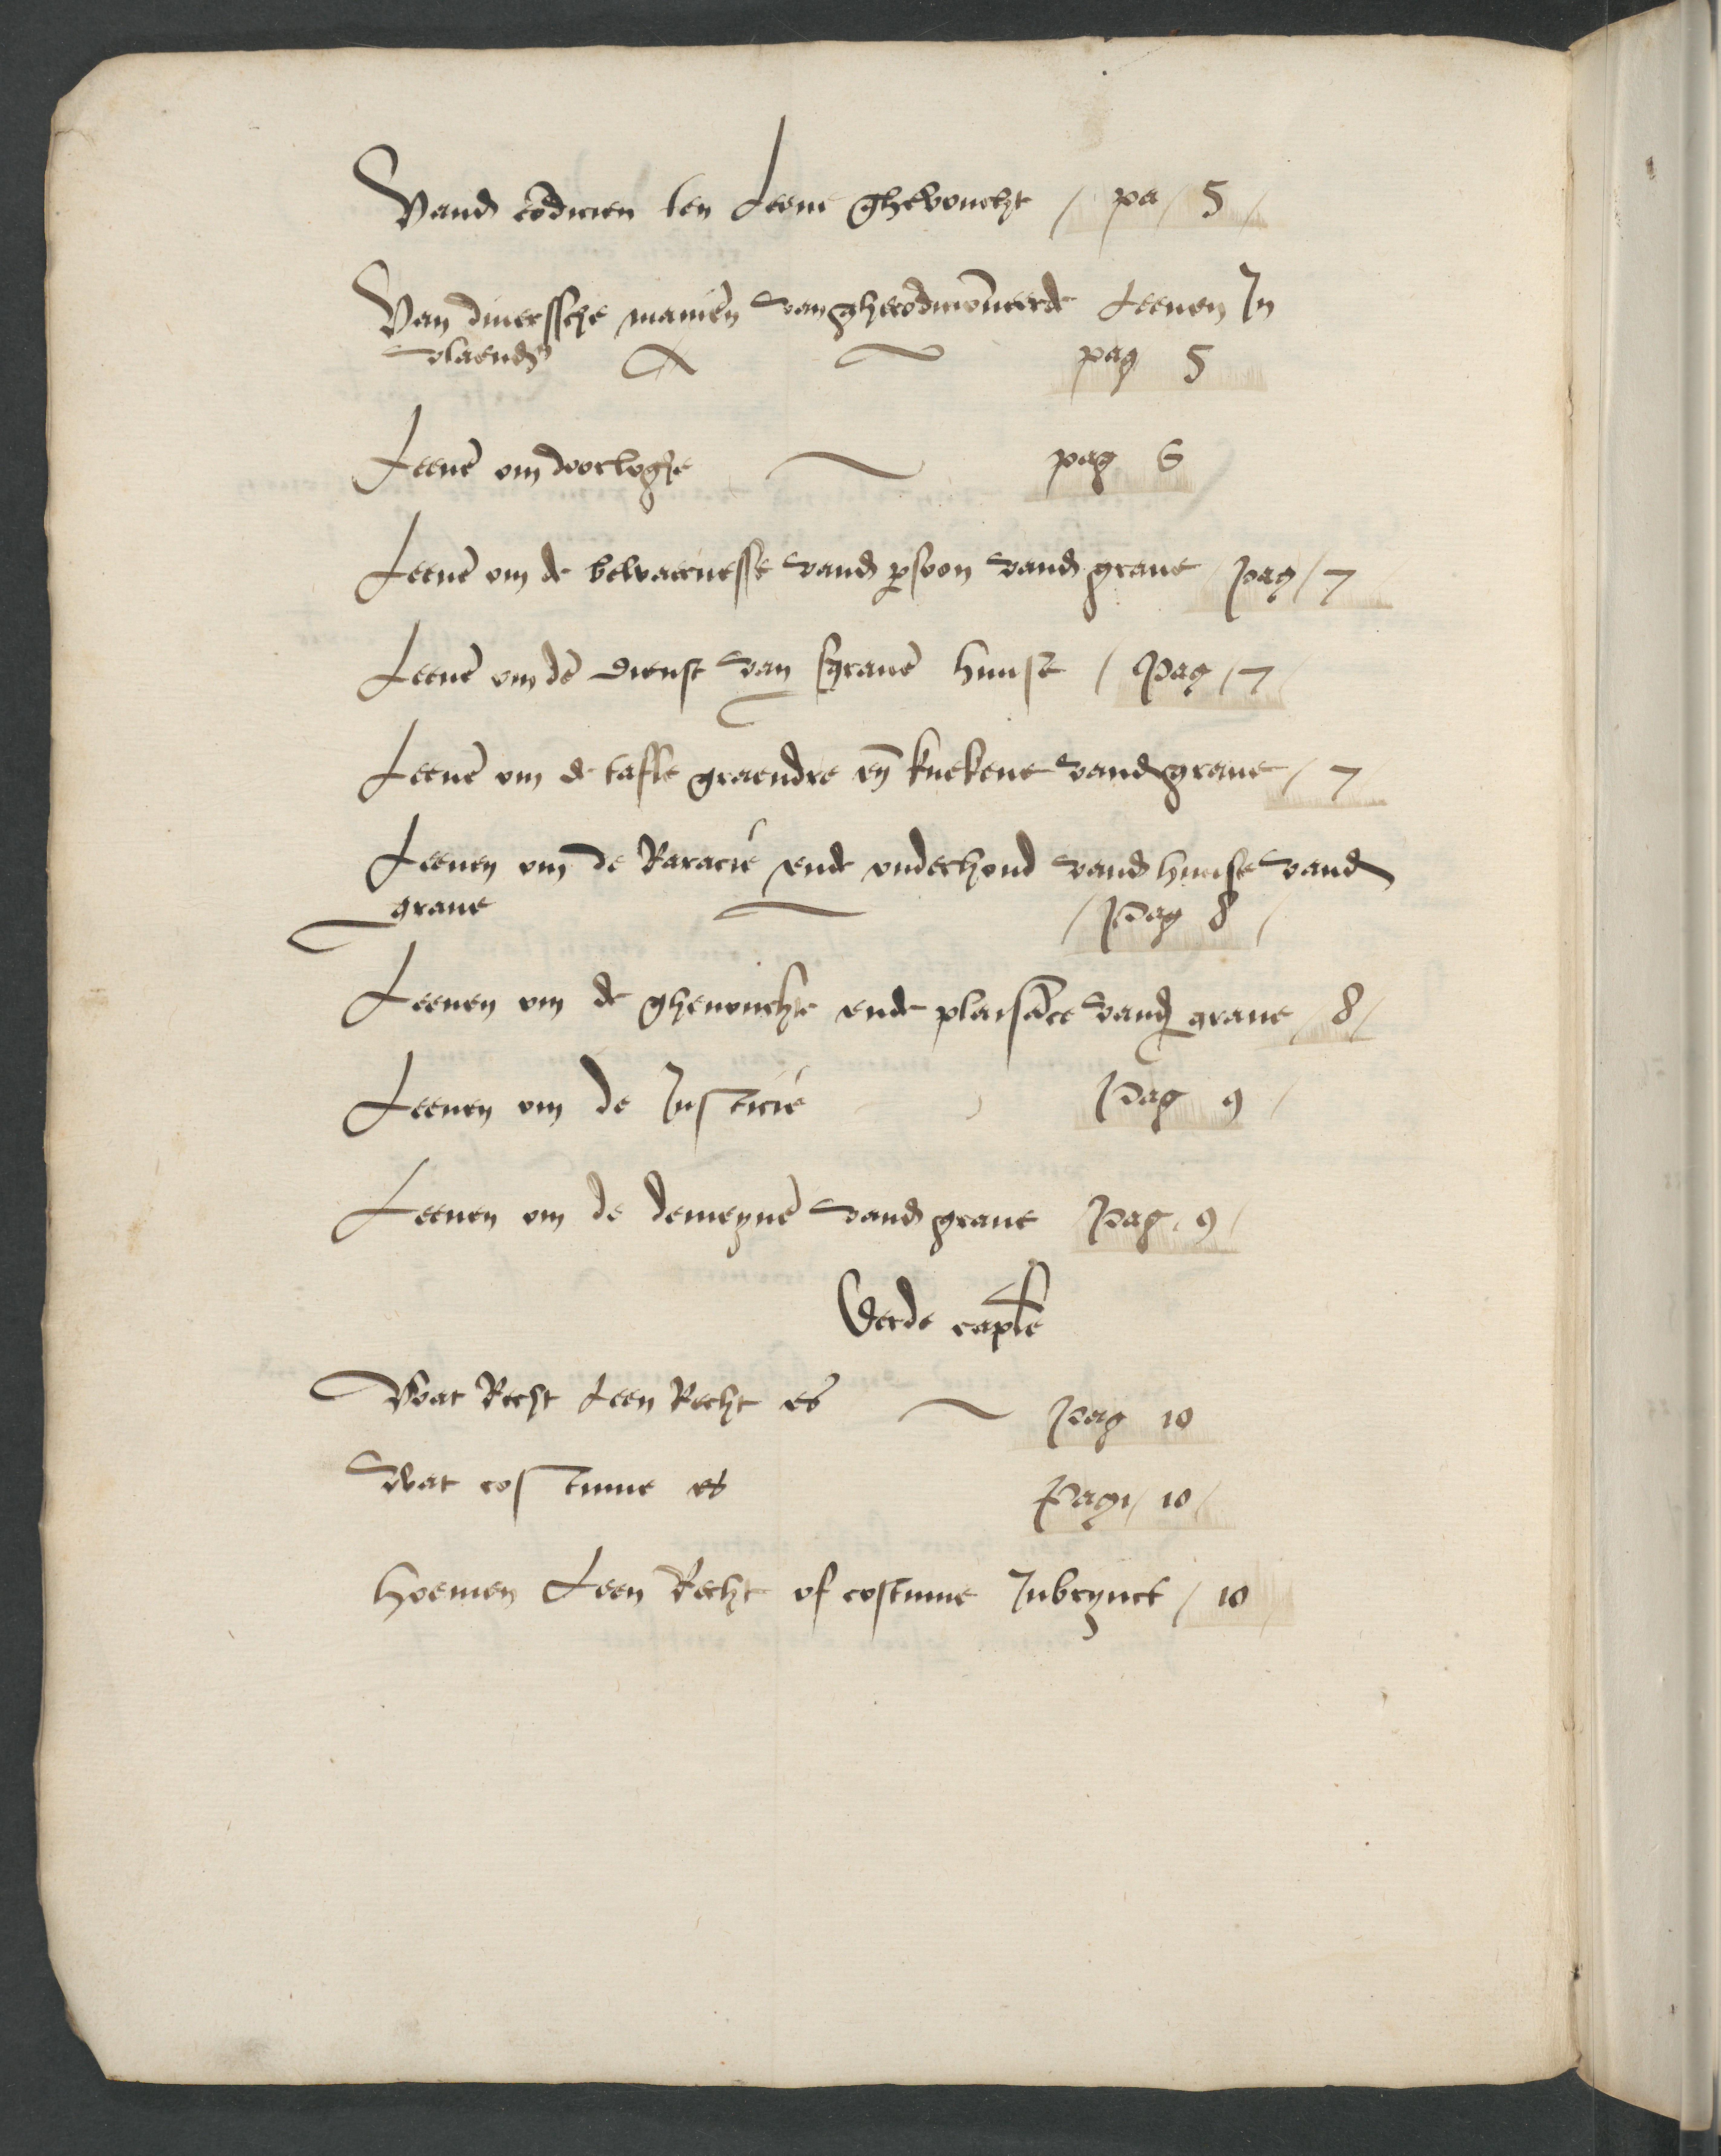 Vand co͂dicien ten Leene ghevoucht / pa / 5 /
Van diuerssche manie͂n van ghecondicio͂neerde Leenen In
vlaend pag 5
Leene͂ om doorloghe pag 6
Leene͂ om de bewaernesse vand psoon vand graue / pag / 7
Leene͂ om de͂ dienst van sgraue͂ huuse / Pag / 7 /
Leene͂ om de tafle graendre en͂ kuekene vand graue / 7
Leenen om de Raracie ende onderhoud vand huuse vand
graue / Pag 8 /
Leenen om de ghenouchte ende plaisa͂ce vand graue / 8 /
Leenen om de Justicie Pag 9 /
Leenen om de demeyne͂ vand graue Pag . 9 /
Derde caple
Wat Recht Leen Recht es Pag 10
Wat costume es Pag / 10 /
Hoemen Leen Recht of costume Inbrynct / 10